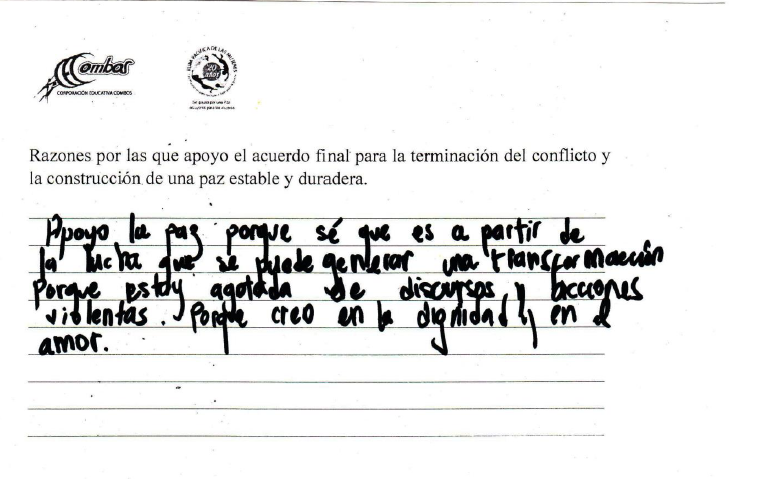 Combos
CORPORACIÓN EDUCATIVA COMBOS
RUTA PACÍFICA DE LAS MUJERES
20 años
Razones por las que apoyo el acuerdo final para la terminación del conflicto y
la construcción de una paz estable y duradera.
Apoyo la paz porque sé que es a partir de
la lucha que se puede generar una transformación
porque estoy agotada de discursos y acciones
violentas. Porque creo en la dignidad y en el
amor.